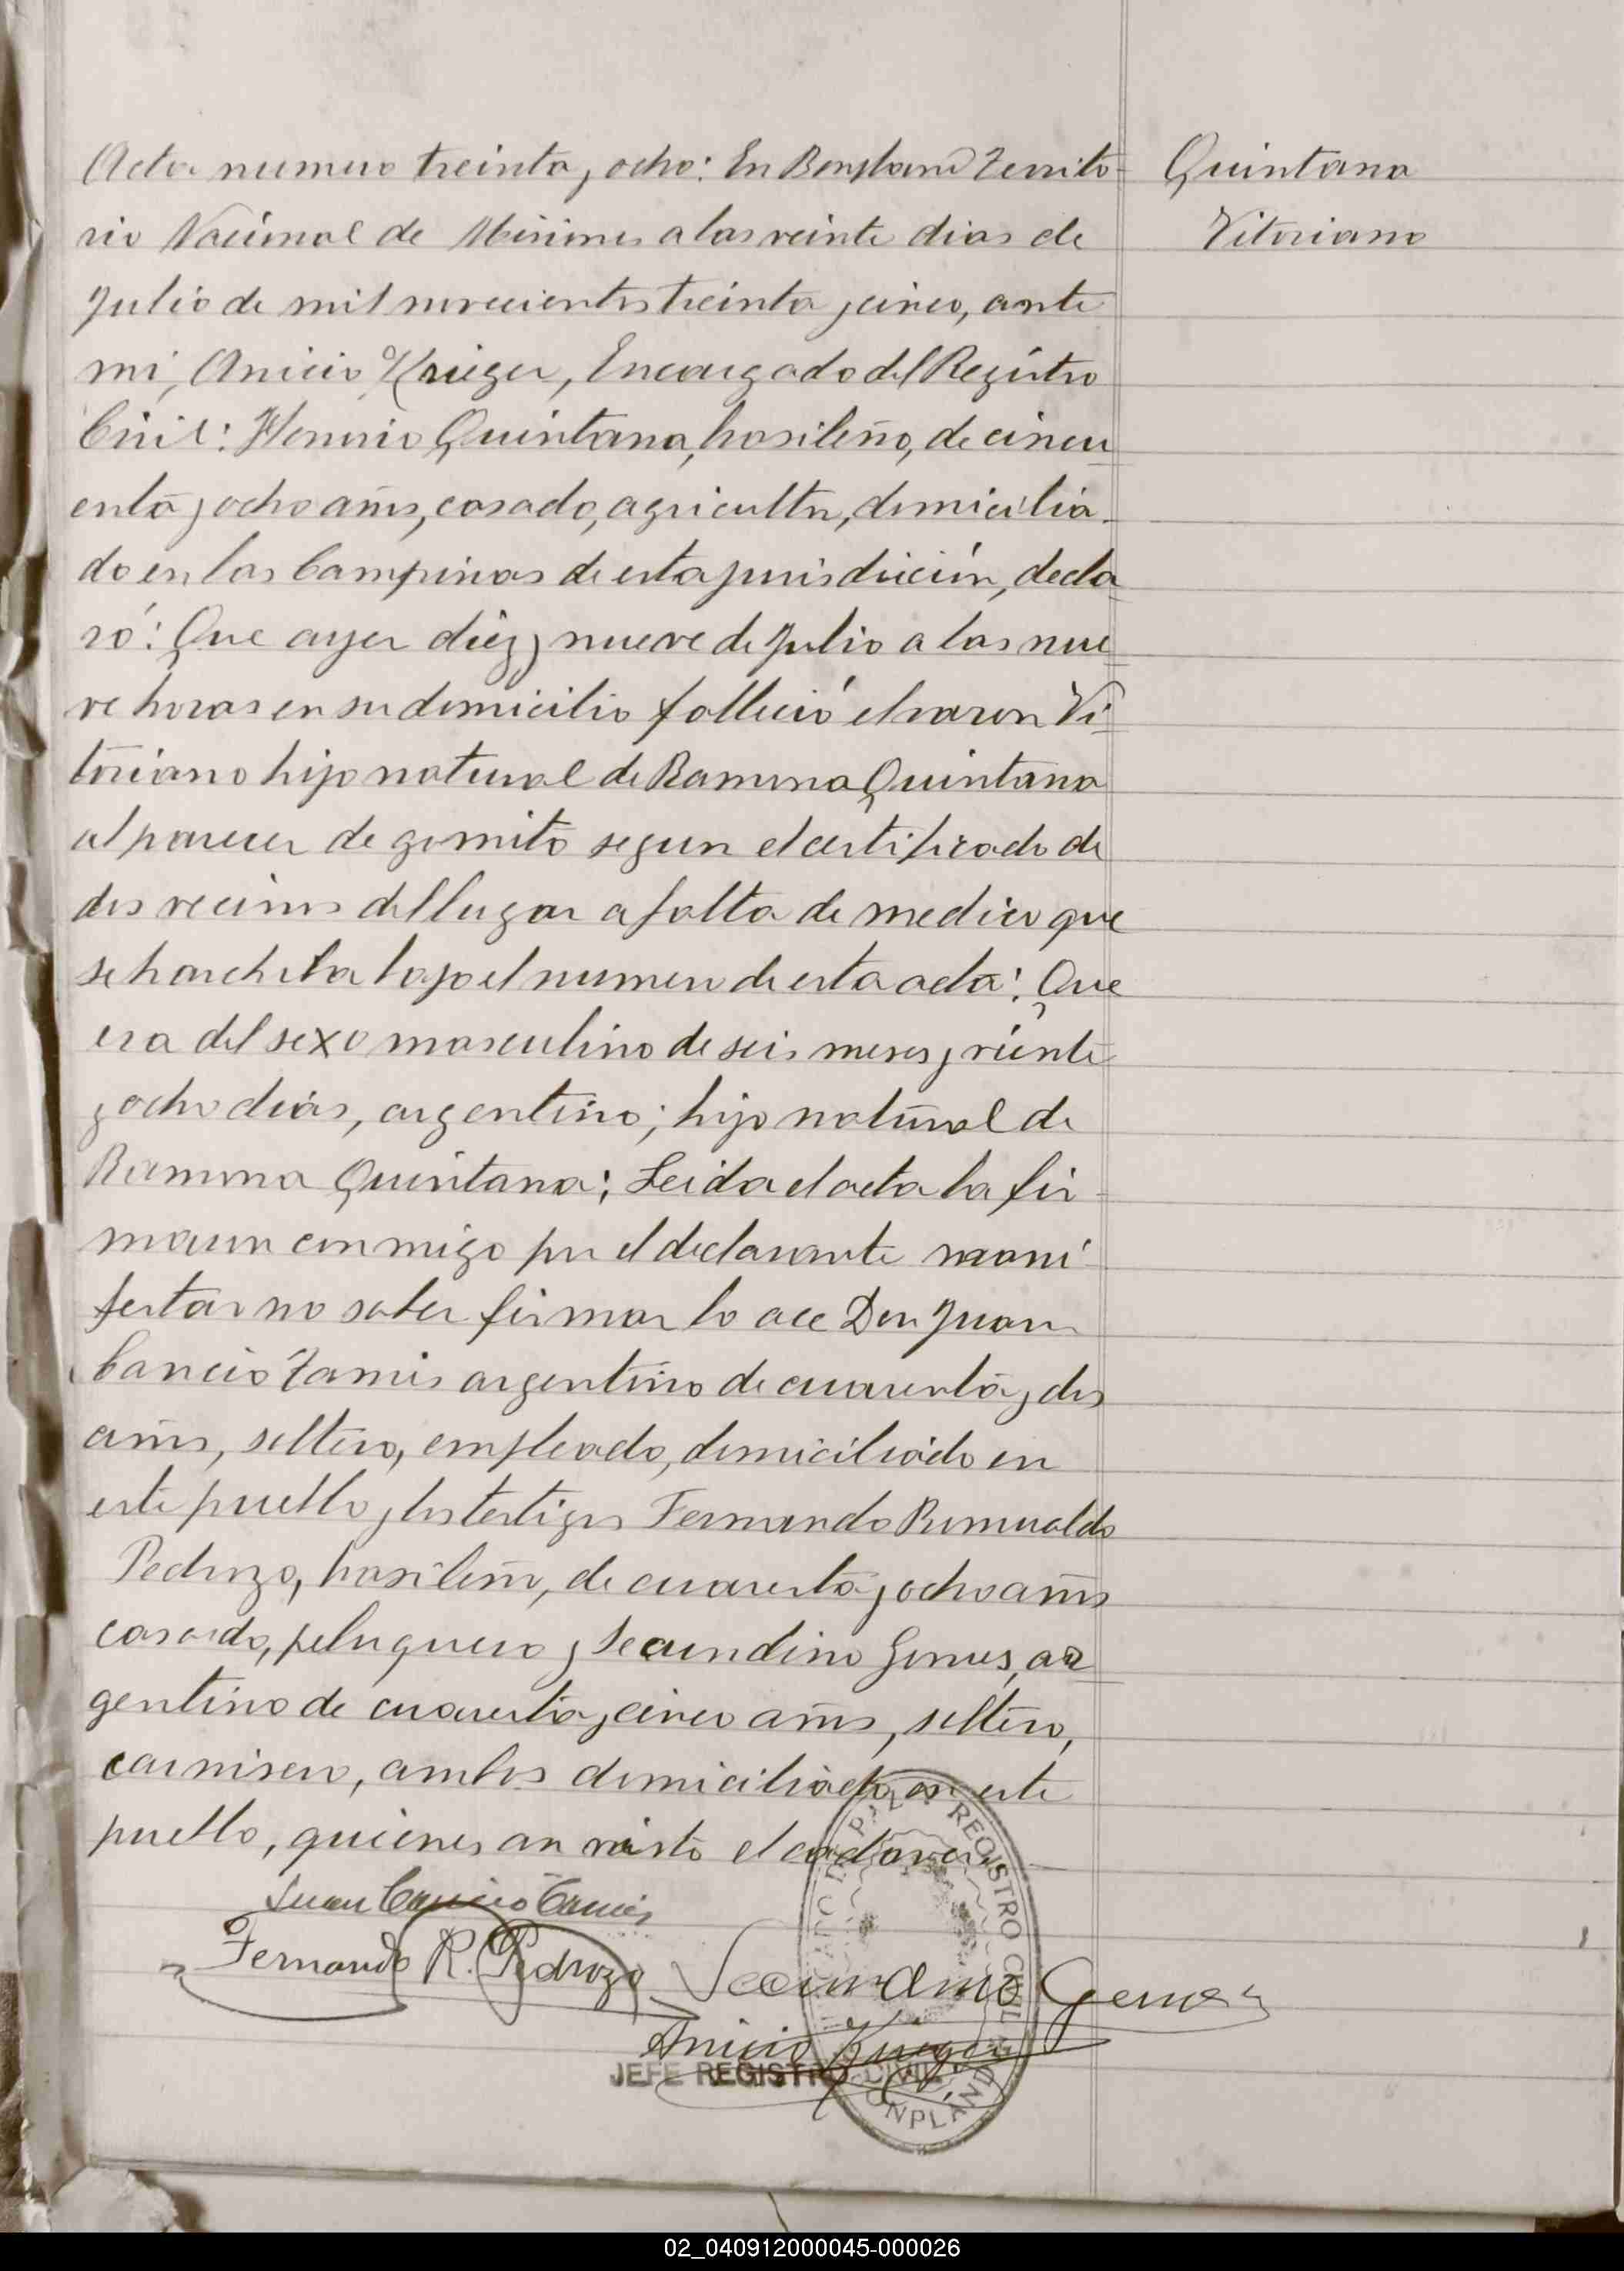 Acta numero treinta y ocho: En Bonpland Territo-
rio Nacional de Misiones a los veinte dias de
Julio de mil novecientos treinta y cinco, ante
mi, Anicio Krieger, Encargado del Registro
Civil: Honorio Quintana, brasileño, de cincu
enta y ocho años, casado, agricultor, domicilia-
do en las Campinas de esta jurisdicción, decla
ró: Que ayer diez y nueve de Julio a las nue
ve horas en su domicilio falleció el varon Vi
toriano hijo natural de Ramona Quintana
al parecer de gomito segun el certificado de
dos vecinos del lugar a falta de medico que
se harchiba bajo el numero de esta acta: Que
era del sexo masculino de seis meses y veinte
y ocho dias, argentino; hijo natural de
Ramona Quintana; Leida el acta la fir-
maron conmigo por el declarante mani-
festar no saber firmar lo ace Don Juan
Cancio Tamis argentino de cuarenta y dos
años, soltero, empleado, domiciliado en
este pueblo y los testigos Fernando Romualdo
Pedrozo, brasileño, de cuarenta y ocho años
casado, peluquero y Secundino Gomes, ar
gentino de cuarenta y cinco años, soltero,
carnisero, ambos domiciliado en este
pueblo, quienes an visto el cadaver.
Quintana
Vitoriano
Juan Cancio Tamis
Fernando R. Pedrozo Secundino Gomes
Anicio Krieger
JEFE REGISTRO CIVIL
PAZ Y REGISTRO CIVIL
BONPLAND
02_040912000045-000026